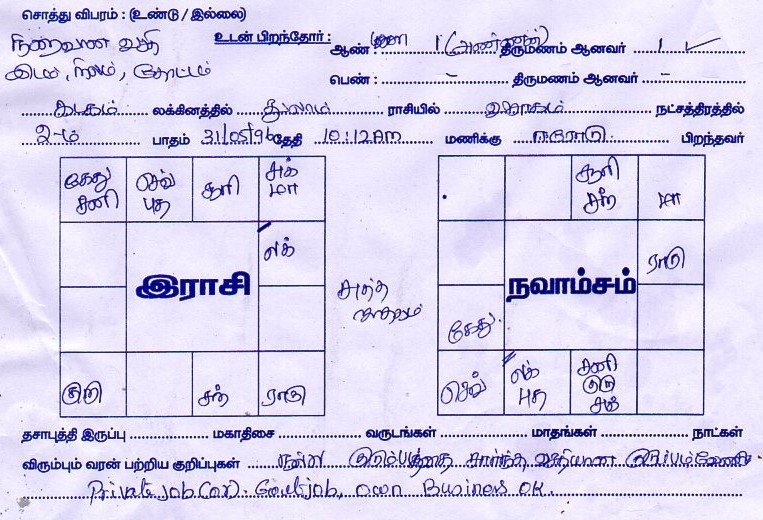 சொத்து விபரம் : (உண்டு / இல்லை)
உடன் பிறந்தோர் : ஆண் 1 (அண்ணன்) திருமணம் ஆனவர் 1 ✓
இடம், நிலம், தோட்டம்
பெண் : - திருமணம் ஆனவர் -
கடகம் லக்கினத்தில் துலாம் ராசியில் விசாகம் நட்சத்திரத்தில்
2-ம் பாதம் 31/05/96 தேதி 10:12AM மணிக்கு ஈரோடு பிறந்தவர்
கேது சனி
செவ் புத
சூரி
சுக் மா
லக்
இராசி
குரு
சந்
ராகு
சுத்த ஜாதகம்
சூரி சந்
மா
ராகு
நவாம்சம்
கேது
செவ்
லக் புத
சனி குரு சுக்
தசாபுத்தி இருப்பு மகாதிசை வருடங்கள் மாதங்கள் நாட்கள்
விரும்பும் வரன் பற்றிய குறிப்புகள் நல்ல குடும்பத்தை சார்ந்த வசதியான
Private Job (or). Govt job, own Business OK.